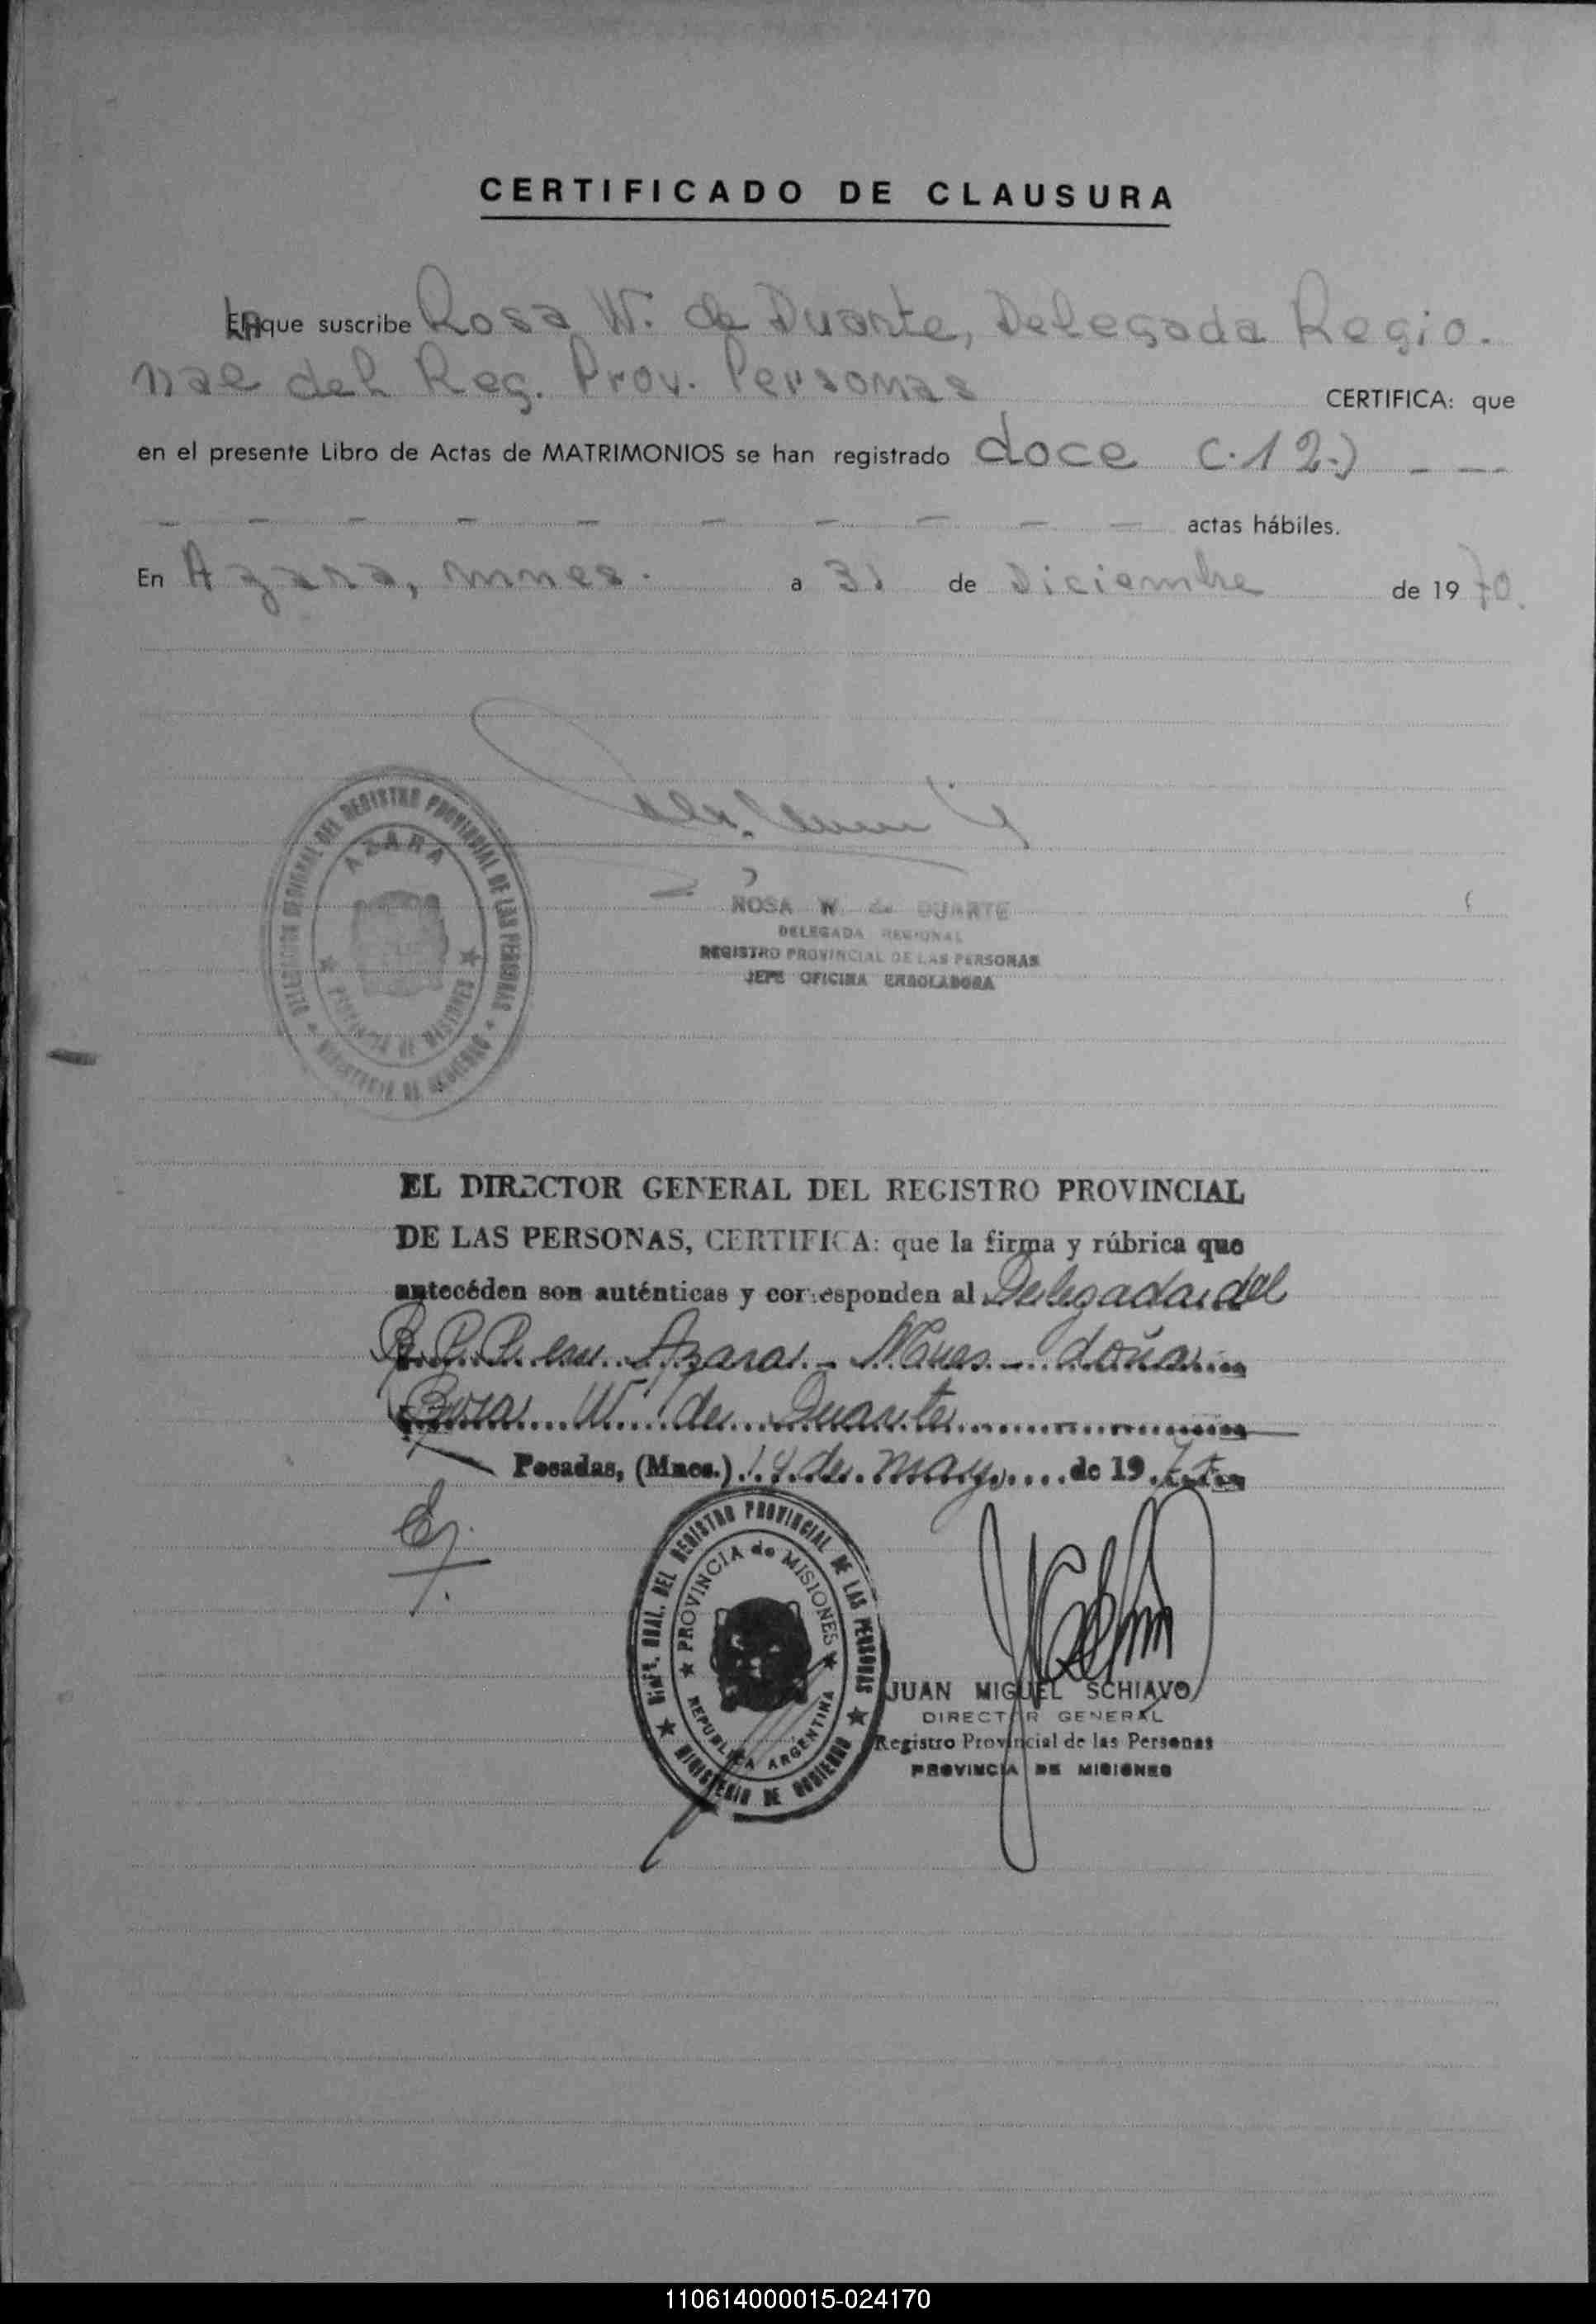 CERTIFICADO DE CLAUSURA
La que suscribe Rosa W. de Duarte, Delegada Regio-
nal del Reg. Prov. Personas CERTIFICA: que
en el presente Libro de Actas de MATRIMONIOS se han registrado doce (.12.) - -
- - - - - - - - - - actas hábiles.
En Azara, Mnes. a 31 de Diciembre de 1970.
DELEGACION REGIONAL DEL REGISTRO PROVINCIAL DE LAS PERSONAS
AZARA
PROVINCIA DE MISIONES
MINISTERIO DE GOBIERNO
ROSA W. de DUARTE
DELEGADA REGIONAL
REGISTRO PROVINCIAL DE LAS PERSONAS
JEFE OFICINA ENROLADORA
EL DIRECTOR GENERAL DEL REGISTRO PROVINCIAL
DE LAS PERSONAS, CERTIFICA: que la firma y rúbrica que
antecéden son auténticas y corresponden al Delegada del
R.P.P. en Azara - Mnes - doña
Rosa W. de Duarte
Posadas, (Mnes.) 14 de mayo de 19
DIR. GRAL. DEL REGISTRO PROVINCIAL DE LAS PERSONAS
PROVINCIA de MISIONES
REPUBLICA ARGENTINA
MINISTERIO DE GOBIERNO
JUAN MIGUEL SCHIAVO
DIRECTOR GENERAL
Registro Provincial de las Personas
PROVINCIA DE MISIONES
110614000015-024170